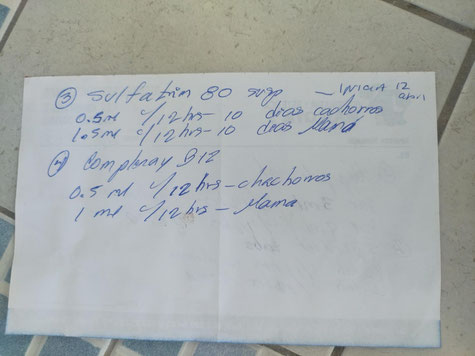 ③ Sulfatrim 80 susp — Iniciar 12 abril
0.5 ml c/12 hrs - 10 dias cachorros
1.5 ml c/12 hrs - 10 dias Mama
Complexay B12
0.5 ml c/12 hrs - chachorros
1 ml c/12 hrs - Mama